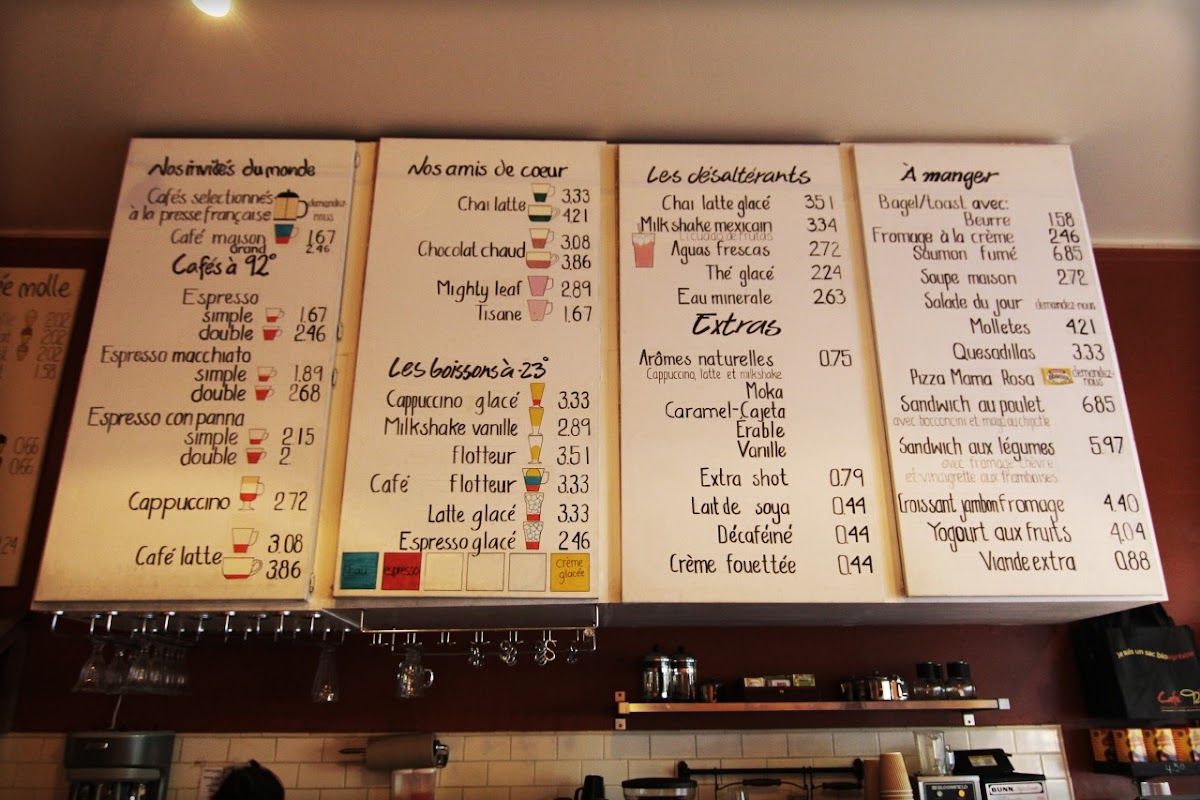 ée molle
202
202
202
1.58
0.66
0.66
Nos invités du monde
Cafés selectionnés
à la presse française
demandez-
nous
Café maison 1.67
grand 2.46
Cafés à 92°
Espresso
simple 1.67
double 2.46
Espresso macchiato
simple 1.89
double 2.68
Espresso con panna
simple 2.15
double 2.
Cappuccino 2.72
Café latte 3.08
3.86
Nos amis de coeur
Chai latte 3.33
4.21
Chocolat chaud 3.08
3.86
Mighty leaf 2.89
Tisane 1.67
Les boissons à -23°
Cappuccino glacé 3.33
Milkshake vanille 2.89
Flotteur 3.51
Café Flotteur 3.33
Latte glacé 3.33
Espresso glacé 2.46
Eau
espresso
Crème
glacée
Les désaltérants
Chai latte glacé 3.51
Milk shake mexicain 3.34
Licuado de frutas
Aguas frescas 2.72
Thé glacé 2.24
Eau minerale 2.63
Extras
Arômes naturelles 0.75
Cappuccino, latte et milkshake
Moka
Caramel-Cajeta
Érable
Vanille
Extra shot 0.79
Lait de soya 0.44
Décaféiné 0.44
Crème fouettée 0.44
À manger
Bagel/toast avec:
Beurre 1.58
Fromage à la crème 2.46
Saumon fumé 6.85
Soupe maison 2.72
Salade du jour demandez-nous
Molletes 4.21
Quesadillas 3.33
Pizza Mama Rosa demandez-
nous
Sandwich au poulet 6.85
avec bocconcini et mayo au chipotle
Sandwich aux légumes 5.97
avec fromage chèvre
et vinaigrette aux framboises
Croissant jambon fromage 4.40
Yogourt aux fruits 4.04
Viande extra 0.88
je suis un sac bio
Café
BLOOMFIELD
BUNN